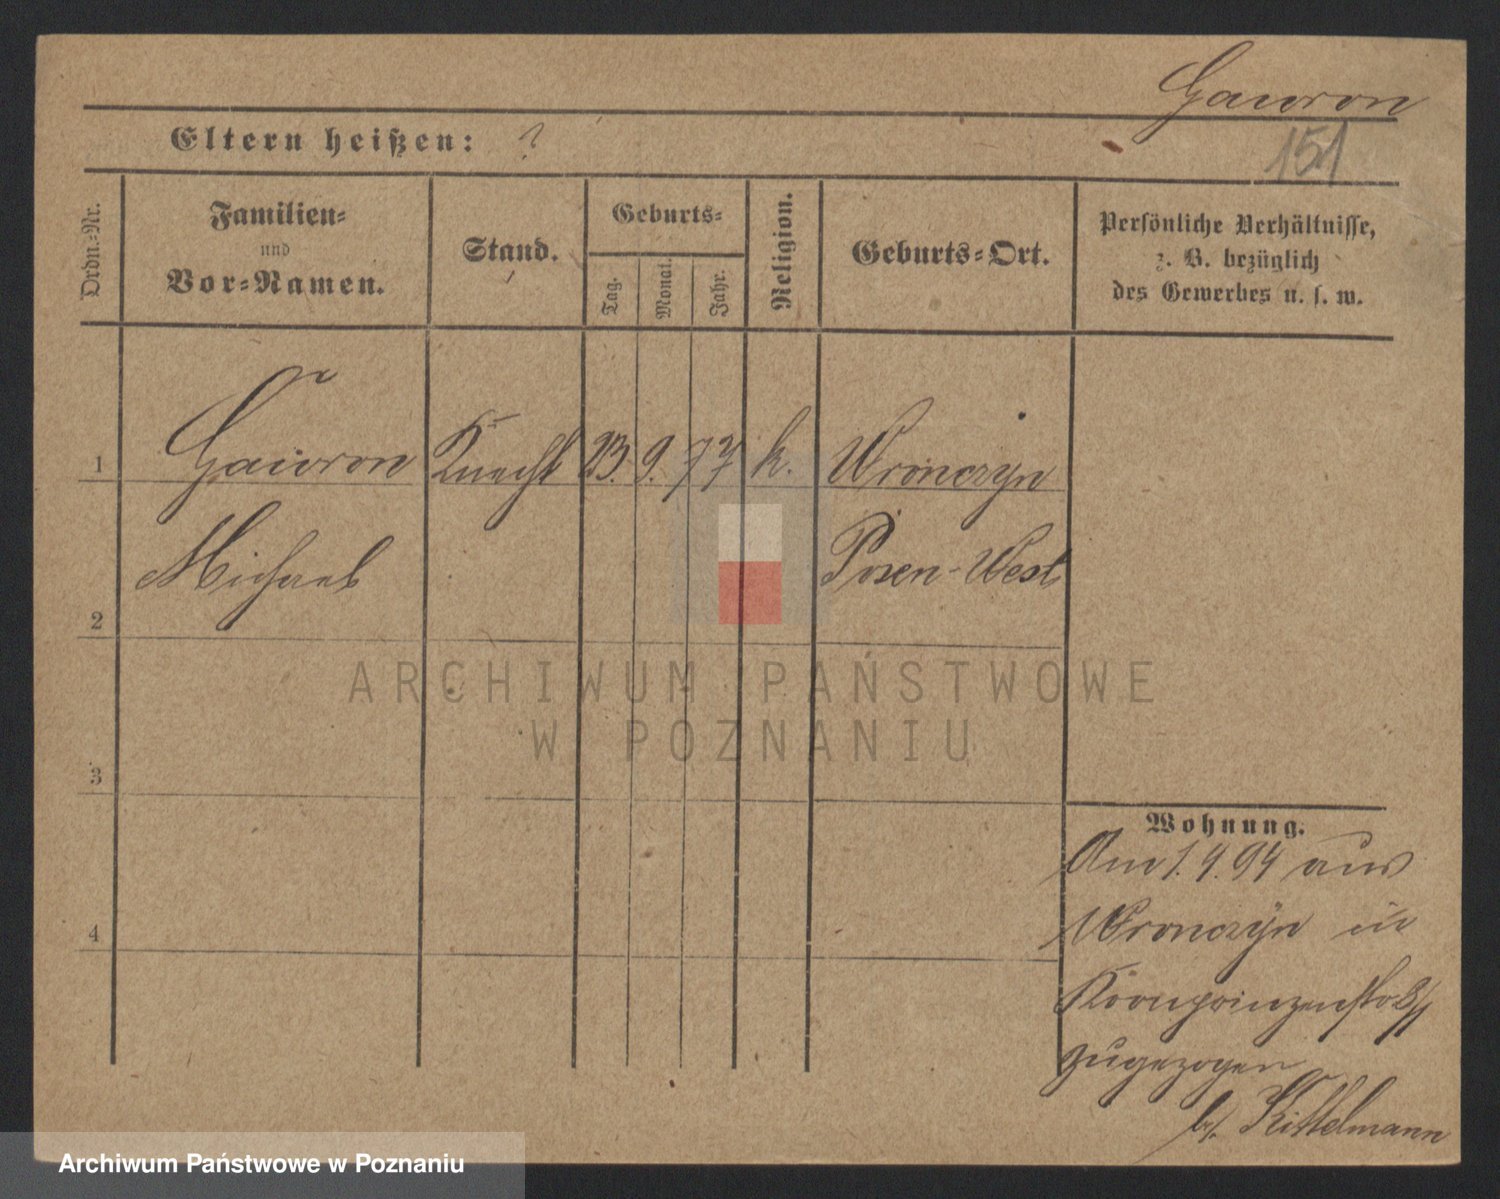 Gawron
151
Eltern heißen: ?
Ordn.-Nr.
Familien-
und
Vor-Namen.
Stand.
Geburts-
Tag.
Monat.
Jahr.
Religion.
Geburts-Ort.
Persönliche Verhältnisse,
z. B. bezüglich
des Gewerbes u. s. w.
1 Gawron Knecht 23. 9. 77 k. Wronczyn
Michael Posen-West
2
3
4
Wohnung.
Am 1. 4. 94 aus
Wronczyn in
Kronprinzenstr 8/
zugezogen
b/. Kittelmann
ARCHIWUM PAŃSTWOWE
W POZNANIU
Archiwum Państwowe w Poznaniu